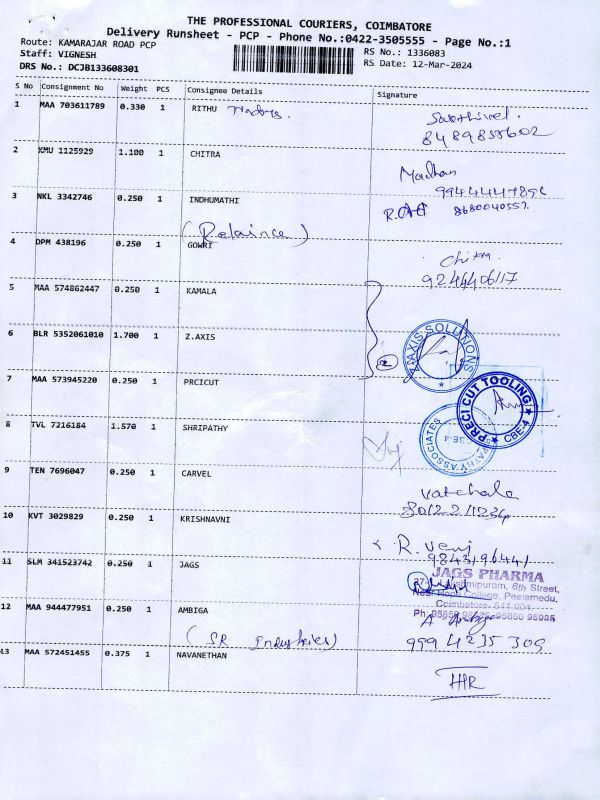 THE PROFESSIONAL COURIERS, COIMBATORE
Delivery Runsheet - PCP - Phone No.:0422-3505555 - Page No.:1
Route: KAMARAJAR ROAD PCP
RS No.: 1336083
Staff: VIGNESH
RS Date: 12-Mar-2024
DRS No.: DCJB133608301
S No Consignment No Weight PCS Consignee Details Signature
1 MAA 703611789 0.330 1 RITHU
Sakthivel.
2 KMU 1125929 1.100 1 CHITRA
Madhan
3 NKL 3342746 0.250 1 INDHUMATHI
8680040557.
(Relaince)
4 DPM 438196 0.250 1 GOWRI
Chitra
9244406117
5 MAA 574862447 0.250 1 KAMALA
6 BLR 5352061010 1.700 1 Z.AXIS
AXIS SOLUTIONS
7 MAA 573945220 0.250 1 PRCICUT
PRECI CUT TOOLING
CBE-4
8 TVL 7216184 1.570 1 SHRIPATHY
ASSOCIATES
9 TEN 7696047 0.250 1 CARVEL
Vatchala
10 KVT 3029829 0.250 1 KRISHNAVNI
R. Veni
11 SLM 341523742 0.250 1 JAGS
JAGS PHARMA
6th Street,
College, Peelamedu,
Coimbatore- 641 004
12 MAA 944477951 0.250 1 AMBIGA
9994235309
(SR Industries)
13 MAA 572451455 0.375 1 NAVANETHAN